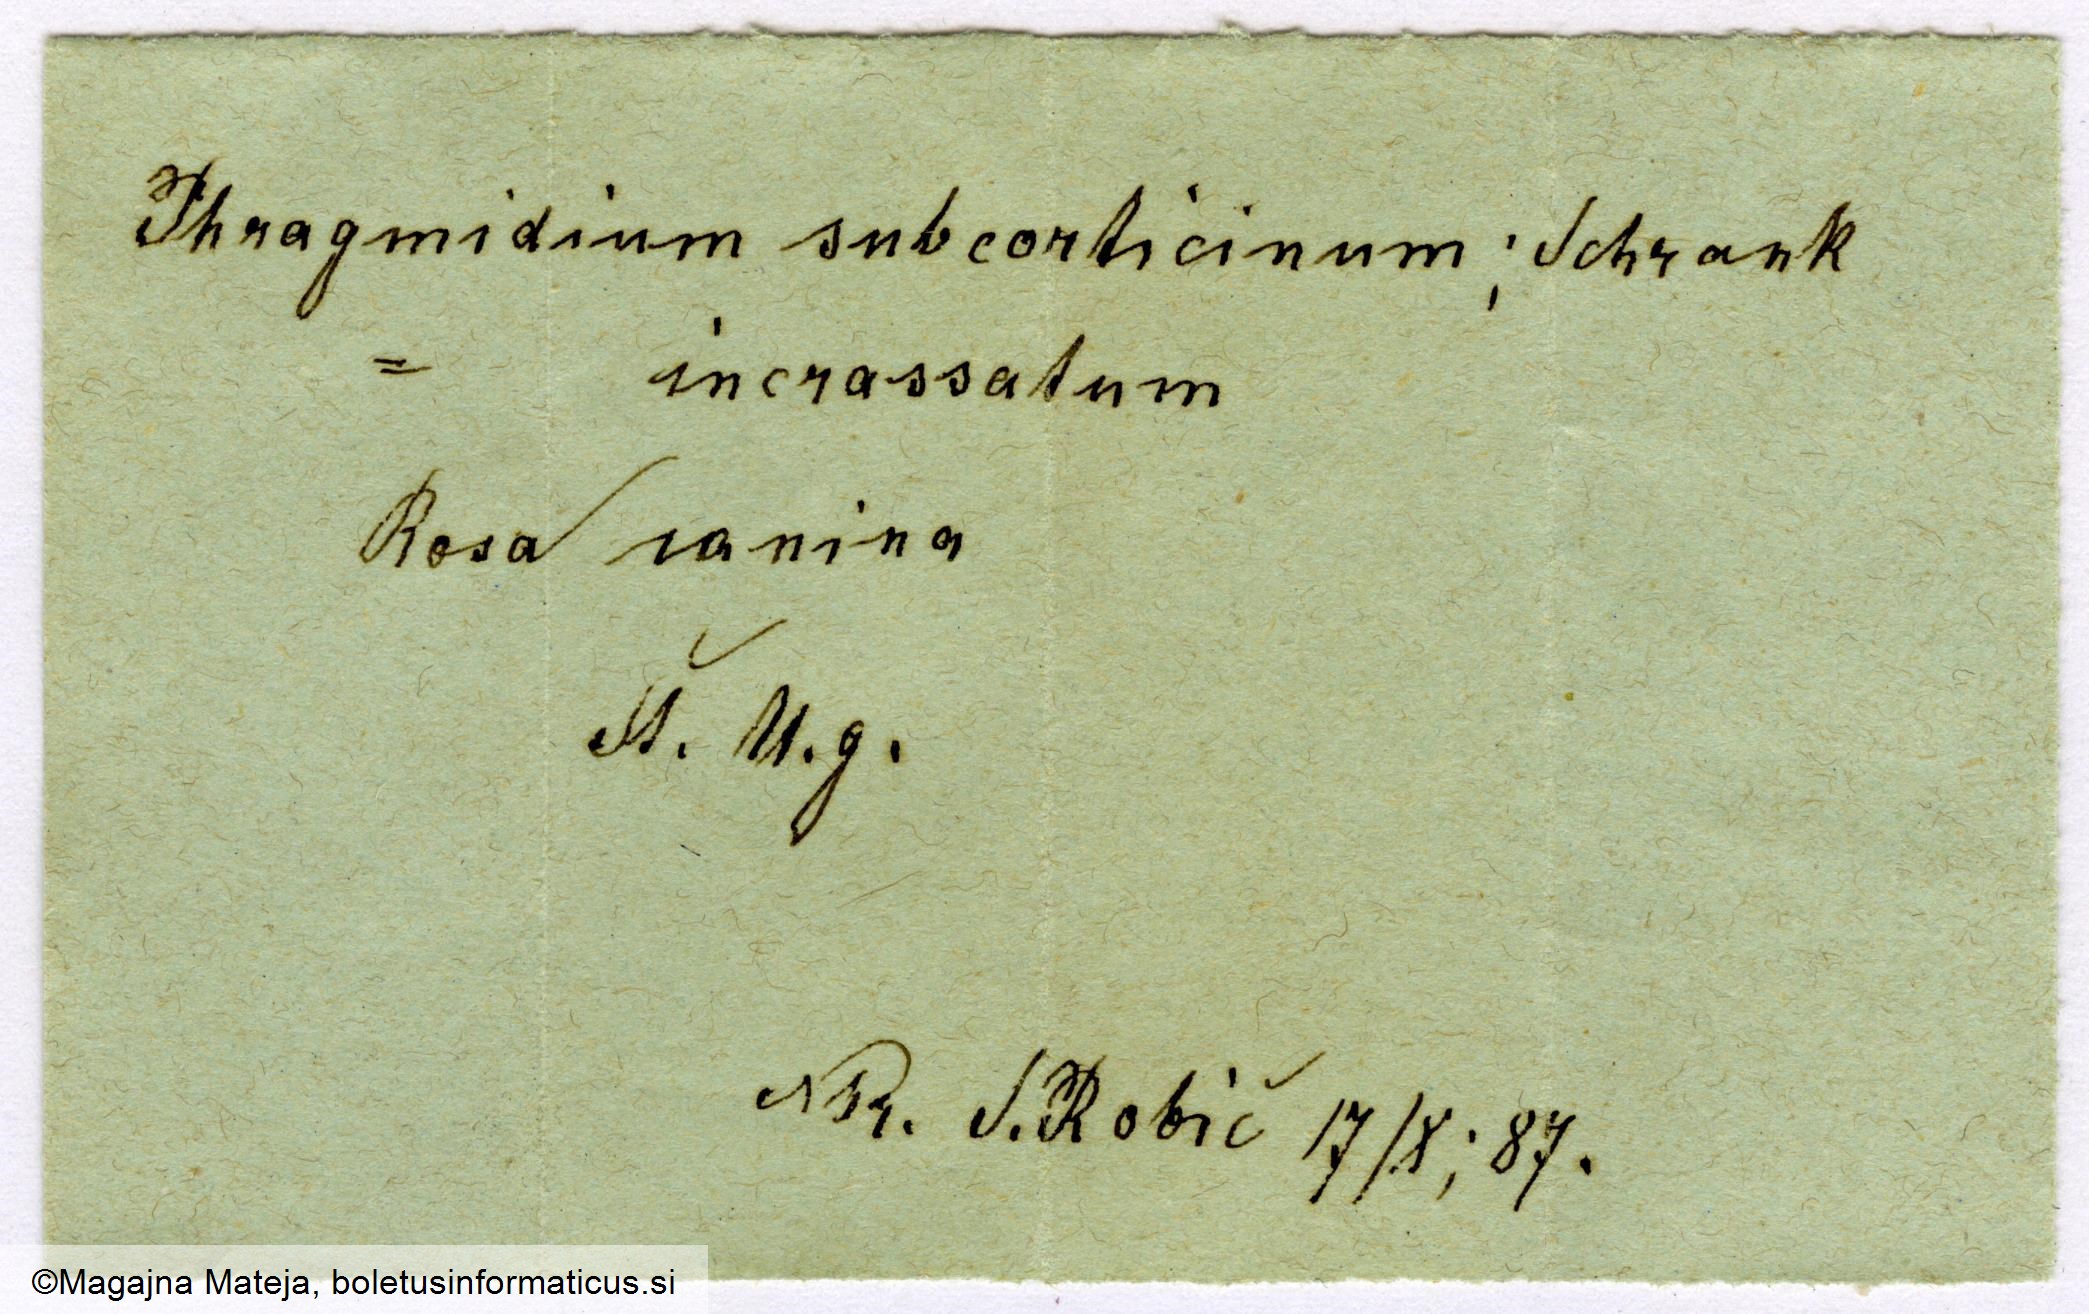 Phragmidium subcorticinum; Schrank
= incrassatum
Rosa canina
Št. U.g.
S. Robič 17/X; 87.
©Magajna Mateja, boletusinformaticus.si